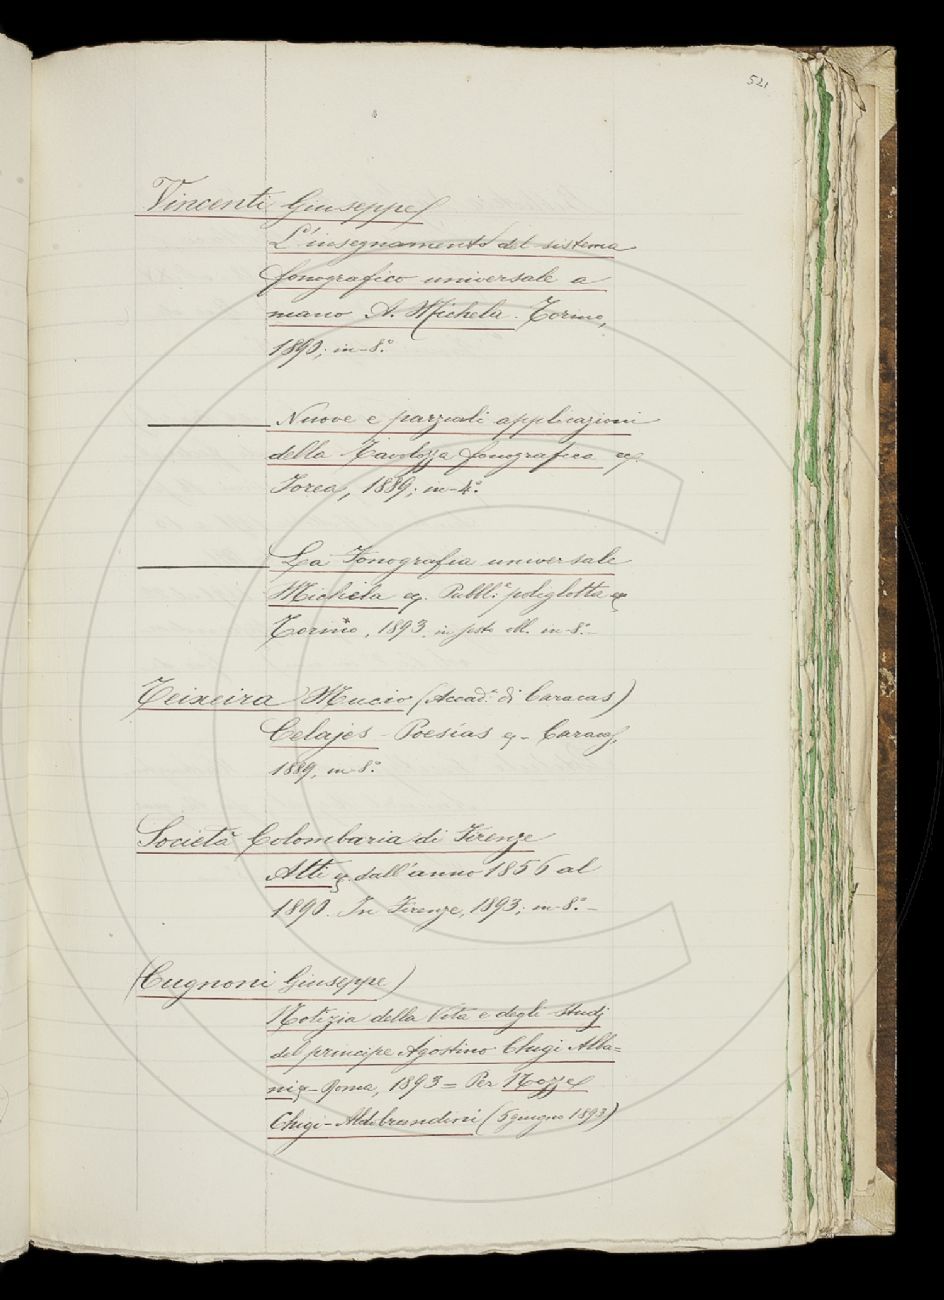 521
Vincenti Giuseppe
L'insegnamento del sistema
fonografico universale a
mano A. Michela. Torino,
1890; in-8.°
Nuove e parziali applicazioni
della Tavolozza fonografica
Ivrea, 1889; in-4.°
La Fonografia universale
Michela Pubbl.e poliglotta
Torino, 1893. in-8.°
Teixeira Mucio (Accad. di Caracas)
Celajes - Poesías - Caracas,
1889, in-8.°
Società Colombaria di Firenze
Atti dall'anno 1856 al
1890. In Firenze, 1893; in-8.° -
(Cugnoni Giuseppe)
Notizia della Vita e degli studj
del principe Agostino Chigi Alba=
ni - Roma, 1893 = Per Nozze
Chigi-Aldobrandini (5 giugno 1893)